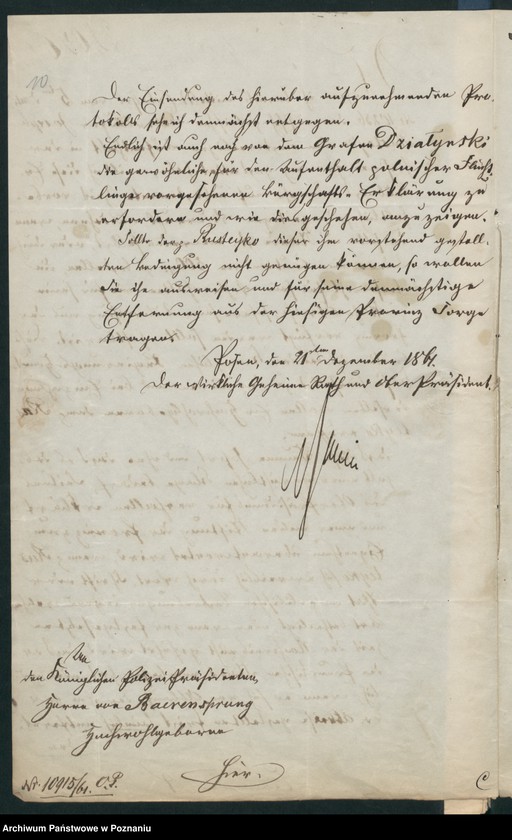 10
Der Einsendung des hierüber aufzunehmenden Pro-
tokolls sehe ich demnächst entgegen.
Endlich ist auch noch von dem Grafen Dzialynski
die gewöhnliche für den Aufenthalt polnischer Flücht-
linge vorgesehene Bürgschafts-Erklärung zu
erfordern und wie dies geschehen, anzuzeigen.
Sollte der dieser ihm vorstehend gestell-
ten Bedingung nicht genügen können, so wollen
Sie ihn ausweisen und für seine demnächstige
Entfernung aus der hiesigen Provinz Sorge
tragen.
Posen, den 21ten Dezember 1861.
Der Wirkliche Geheime Rath und Ober Präsident.
An
den Königlichen Polizei Präsidenten,
Herrn von Baerensprung
Hochwohlgeboren
Hier.
Nr. 10915/61. O.P.
C
Archiwum Państwowe w Poznaniu